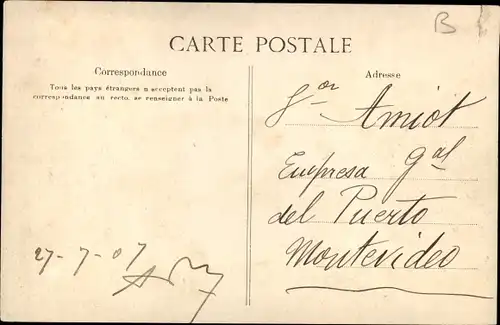 B
CARTE POSTALE
Correspondance
Tous les pays étrangers n'acceptent pas la
correspondance au recto, se renseigner à la Poste
27-7-07
Adresse
Sor Amiot
Empresa Gal
del Puerto
Montevideo